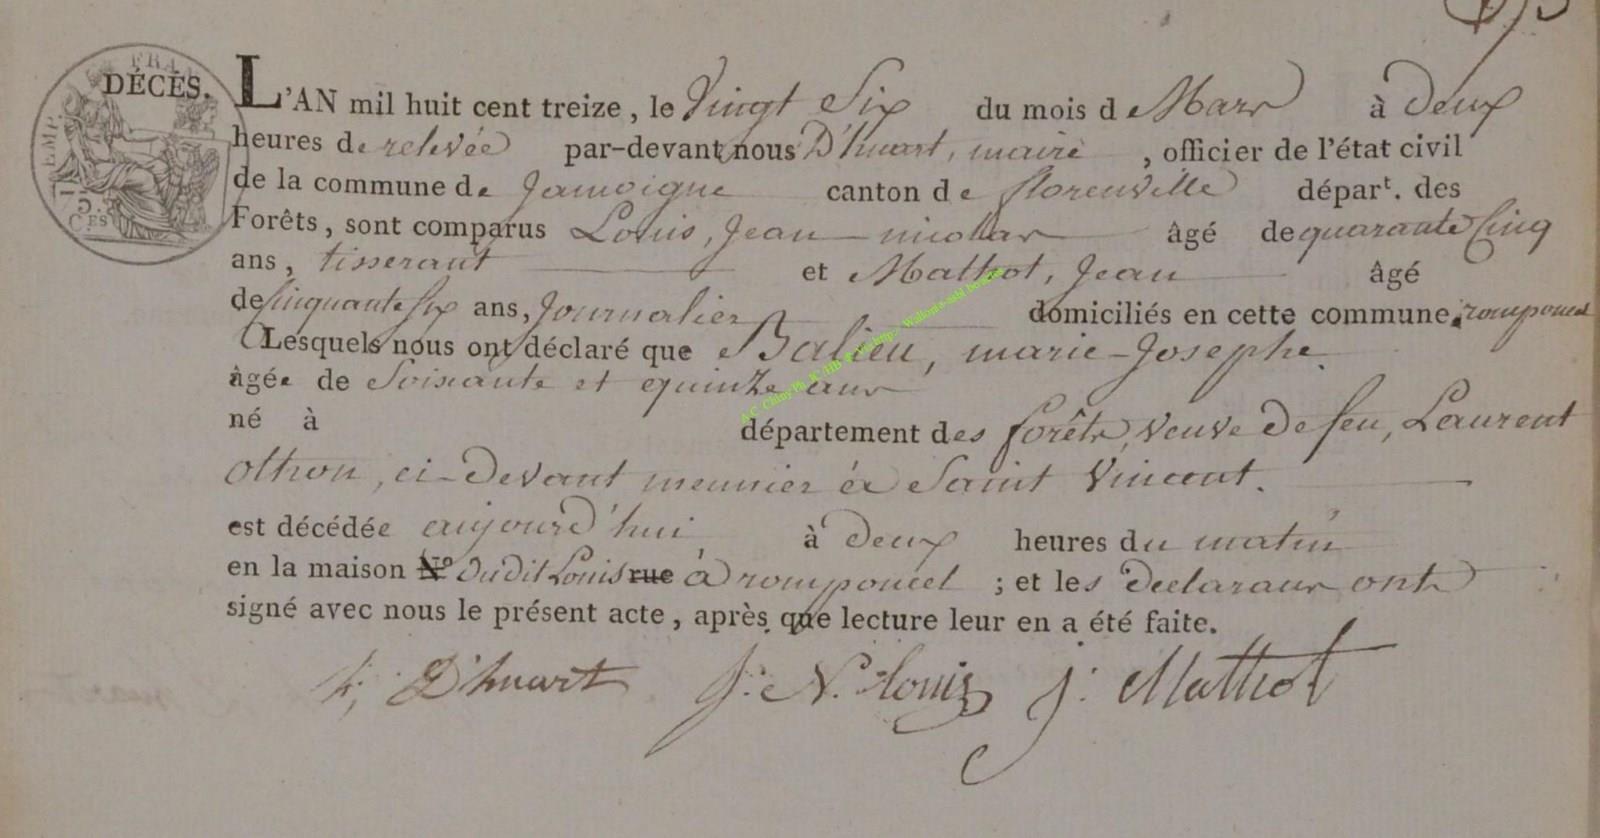 DÉCÈS.
L'AN mil huit cent treize, le Vingt Six du mois de Mars à deux
heures de relevée par-devant nous D'huart, maire, officier de l'état civil
de la commune de Jamoigne canton de florenville départ. des
Forêts, sont comparus Louis, Jean nicolas âgé de quarante Cinq
ans, tisserant et Mathot, Jean âgé
de Cinquante Six ans, Journalier domiciliés en cette commune. romponcel
Lesquels nous ont déclaré que Balieu, marie-Josephe
âgée de Soixante et quinze ans
né à département des forêts, veuve de feu, Laurent
othon, ci-devant meunier à Saint Vincent.
est décédée aujourd'hui à deux heures du matin
en la maison N.º du dit Louis rue à romponcel ; et les declarans ont
signé avec nous le présent acte, après que lecture leur en a été faite.
D'huart J. N. Louis J. Mathot
EMP.
75
C.ES